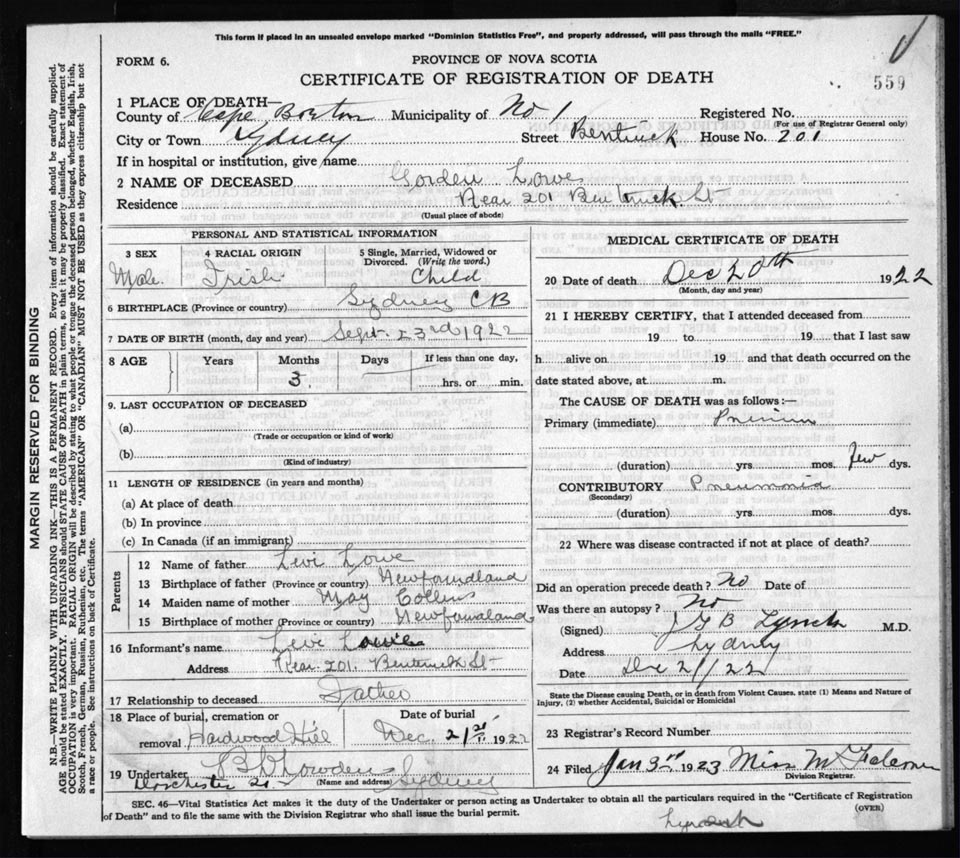 This form if placed in an unsealed envelope marked "Dominion Statistics Free", and properly addressed, will pass through the mails "FREE."
FORM 6.
PROVINCE OF NOVA SCOTIA
CERTIFICATE OF REGISTRATION OF DEATH
559
1 PLACE OF DEATH—
County of Cape Breton Municipality of No 1 Registered No.
(For use of Registrar General only)
City or Town Sydney Street Bentinck House No. 201
If in hospital or institution, give name
2 NAME OF DECEASED Gorden Lowe
Residence Rear 201 Bentinck St
(Usual place of abode)
PERSONAL AND STATISTICAL INFORMATION
3 SEX 4 RACIAL ORIGIN 5 Single, Married, Widowed or Divorced. (Write the word.)
Male Irish Child
6 BIRTHPLACE (Province or country) Sydney CB
7 DATE OF BIRTH (month, day and year) Sept. 23rd 1922
8 AGE Years Months Days If less than one day,
3 hrs. or min.
9. LAST OCCUPATION OF DECEASED
(a)
(Trade or occupation or kind of work)
(b)
(Kind of industry)
11 LENGTH OF RESIDENCE (in years and months)
(a) At place of death
(b) In province
(c) In Canada (if an immigrant)
Parents
12 Name of father Levi Lowe
13 Birthplace of father (Province or country) Newfoundland
14 Maiden name of mother May Collins
15 Birthplace of mother (Province or country) Newfoundland
16 Informant's name Levi Lowe
Address Rear 201 Bentinck St
17 Relationship to deceased Father
18 Place of burial, cremation or Date of burial
removal Hardwood Hill Dec. 21st 1922
19 Undertaker
(Name and address) Sydney
Dorchester
MEDICAL CERTIFICATE OF DEATH
20 Date of death Dec 20th 1922
(Month, day and year)
21 I HEREBY CERTIFY, that I attended deceased from
19 to 19 that I last saw
h alive on 19 and that death occurred on the
date stated above, at m.
The CAUSE OF DEATH was as follows:—
Primary (immediate)
(duration) yrs. mos. few dys.
CONTRIBUTORY Pneumonia
(Secondary)
(duration) yrs. mos. dys.
22 Where was disease contracted if not at place of death?
Did an operation precede death? No Date of
Was there an autopsy? No
(Signed) Lynch M.D.
Address Sydney
Date Dec 21/22
State the Disease causing Death, or in death from Violent Causes, state (1) Means and Nature of
Injury, (2) whether Accidental, Suicidal or Homicidal
23 Registrar's Record Number
24 Filed Jan 3rd 1923 Miss M
Division Registrar.
SEC. 46—Vital Statistics Act makes it the duty of the Undertaker or person acting as Undertaker to obtain all the particulars required in the "Certificate of Registration
of Death" and to file the same with the Division Registrar who shall issue the burial permit.
(OVER)
MARGIN RESERVED FOR BINDING
N.B.—WRITE PLAINLY WITH UNFADING INK—THIS IS A PERMANENT RECORD. Every item of information should be carefully supplied.
AGE should be stated EXACTLY. PHYSICIANS should STATE CAUSE OF DEATH in plain terms, so that it may be properly classified. Exact statement of
OCCUPATION is very important. RACIAL ORIGIN will be described by stating to what people or tongue the deceased person belonged, whether English, Irish,
Scotch, French, German, Russian, Ruthenian, etc. The terms "AMERICAN" OR "CANADIAN" MUST NOT BE USED as they express citizenship but not
a race or people. See instructions on back of Certificate.